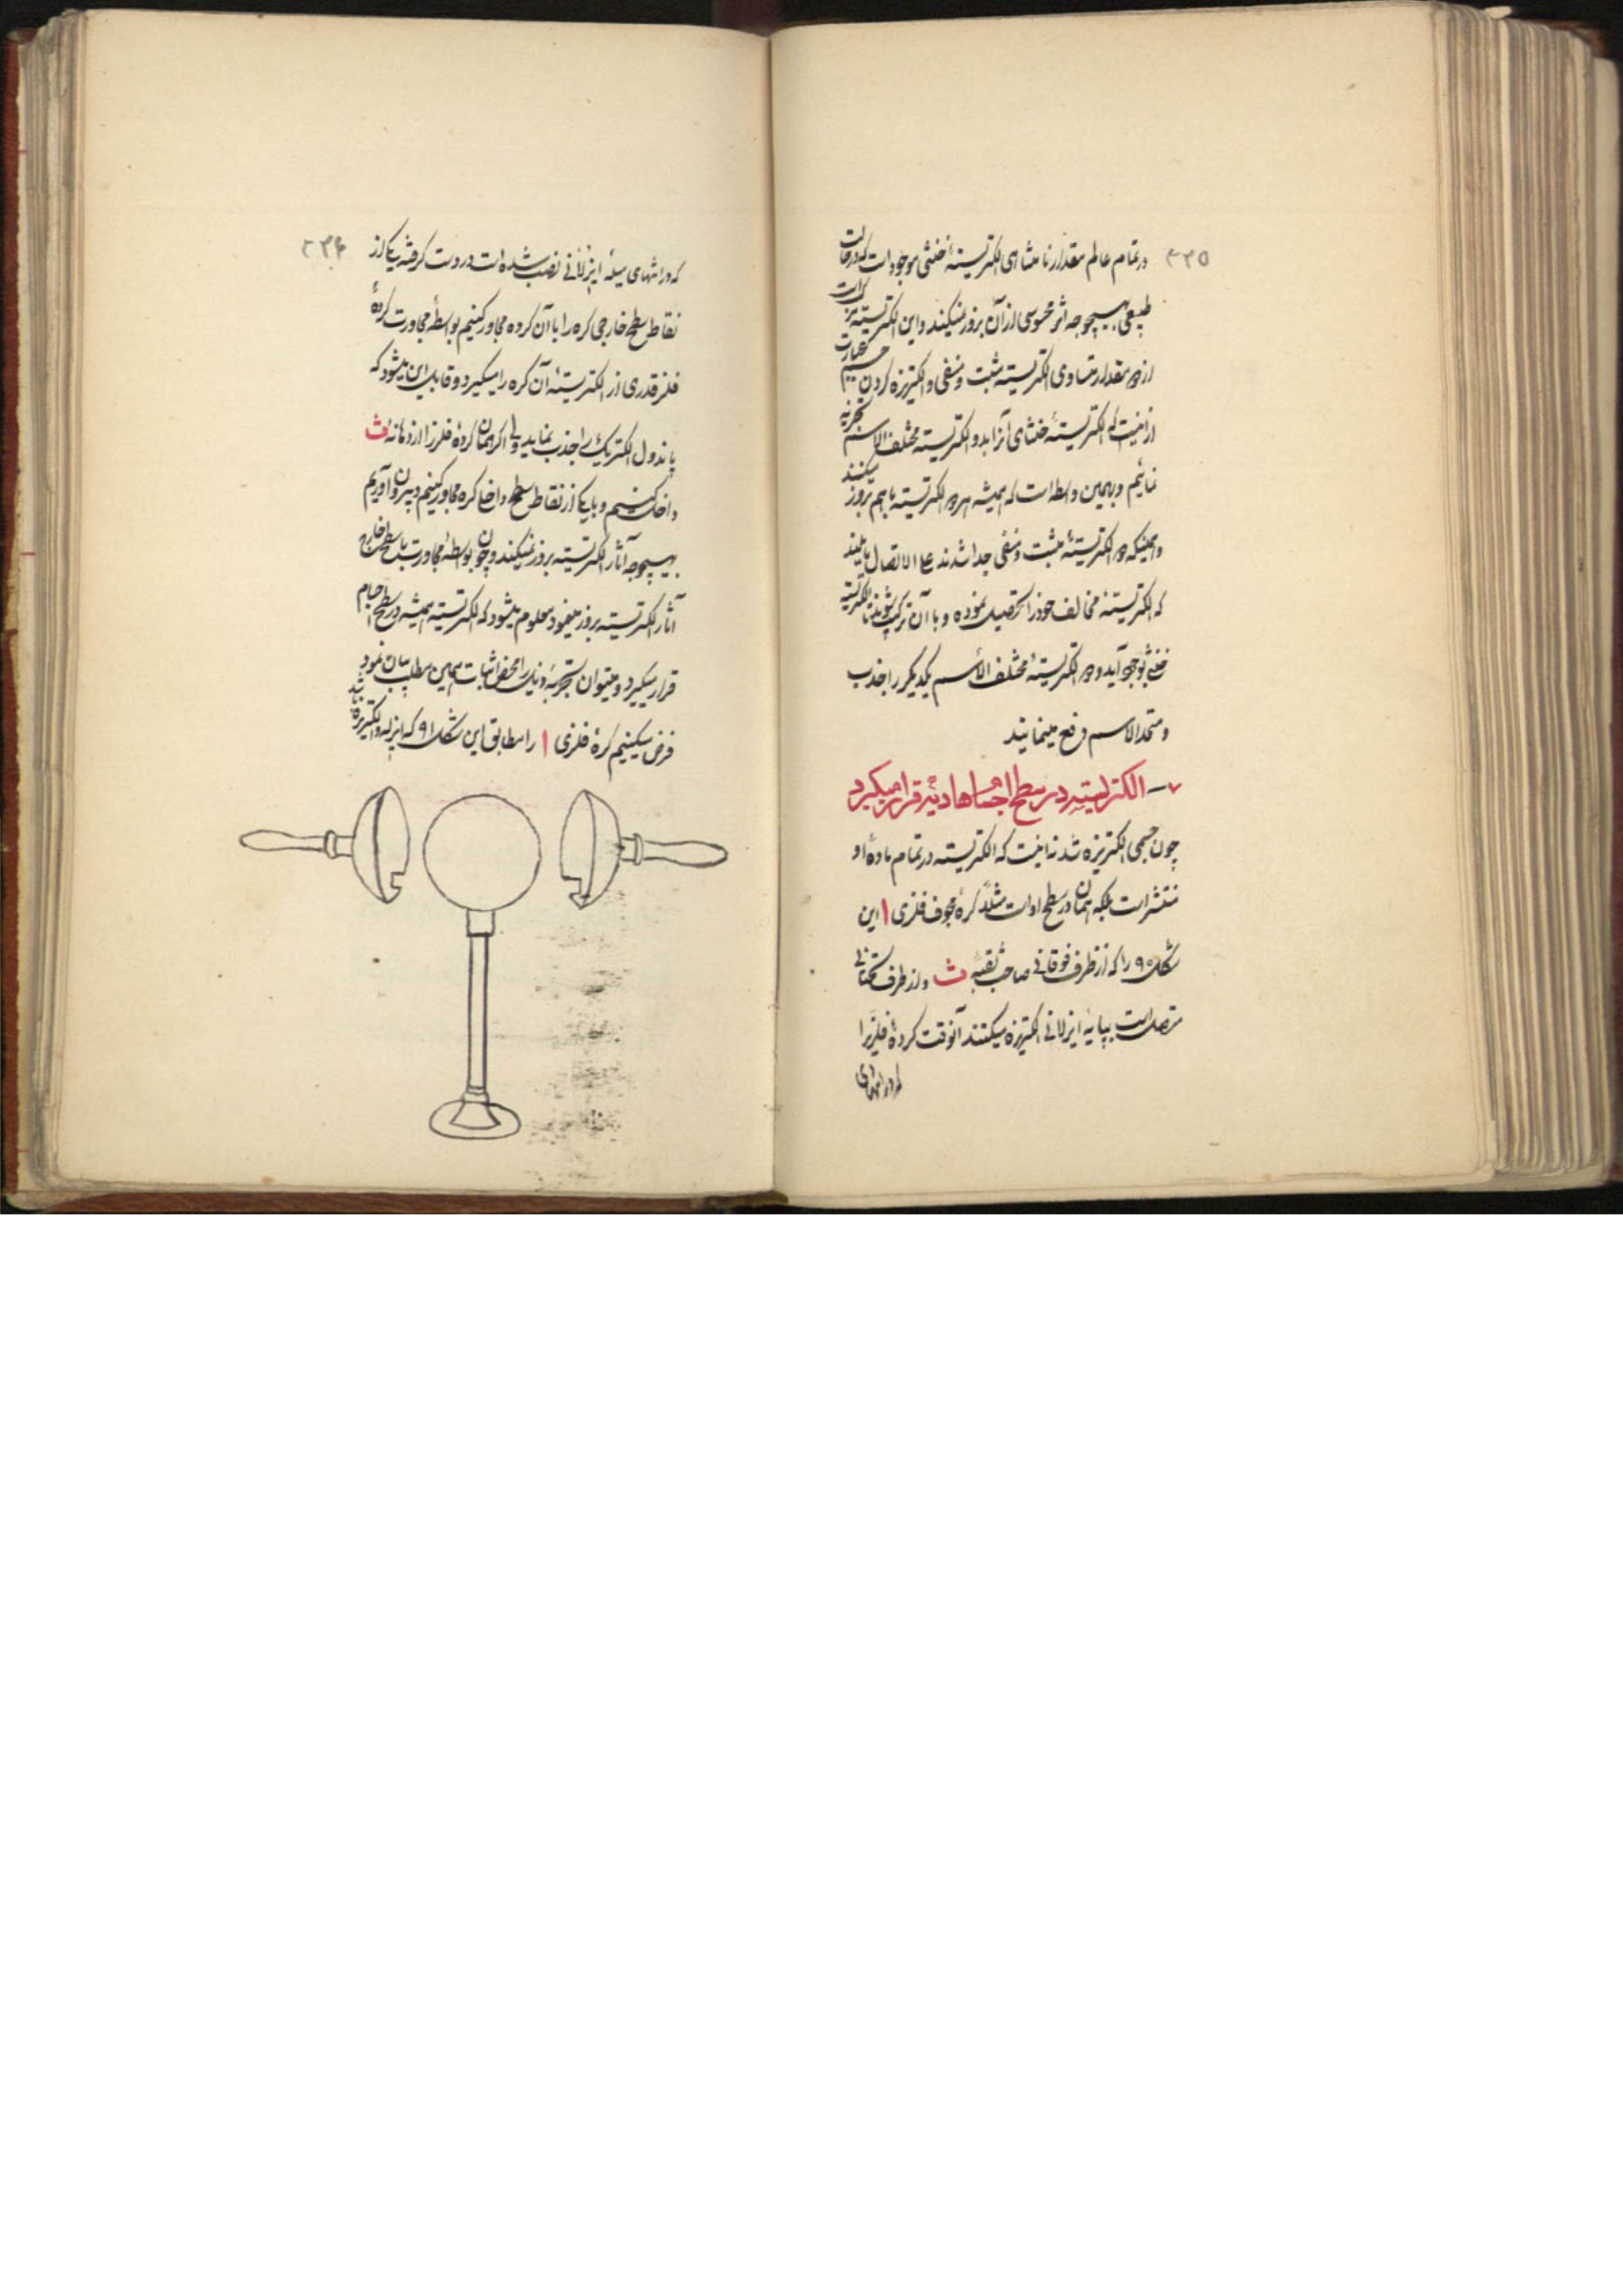 ۴۳۵
در تمام عالم مقدار نا متناهی الکتریسیتهٔ خنثی موجود است که در حالت
طبیعی بهیچوجه اثر محسوسی از آن بروز نمیکند و این الکتریسیته مرکب است
از دو مقدار متساوی الکتریسیته مثبت و منفی و الکتریزه کردن جسم عبارت
از اینست که الکتریسیتهٔ خنثای آنرا بدو الکتریسیته مختلف الاسم تجزیه
نمائیم و بهمین واسطه است که همیشه هر دو الکتریسیته با هم بروز میکنند
و همینکه دو الکتریسیتهٔ مثبت و منفی جدا شدند علی الاتصال مایلند
که الکتریسیتهٔ مخالف خود را تحصیل نموده و با آن ترکیب شوند تا الکتریسیته
خنثی بوجود آید و دو الکتریسیتهٔ مختلف الاسم یکدیگر را جذب
و متحد الاسم دفع مینمایند
۷ – الکتریسیته در سطح اجسام هادیه قرار میگیرد
چون جسمی الکتریزه شد نه اینست که الکتریسیته در تمام مادهٔ او
منتشر است بلکه همان در سطح او است مثلاً کرهٔ مجوف فلزی ا این
شکل ۹۰ را که از طرف فوقانی صاحب ثقبهٔ ث و از طرف تحتانی
متصل است بپایهٔ ایزلانی الکتریزه میکنند آنوقت کردهٔ فلزیرا
که در انتهای
۴۳۶
که در انتهای میلهٔ ایزلانی نصب شده است در دست گرفته یکی از
نقاط سطح خارجی کره را با آن کرده مجاور کنیم بواسطهٔ مجاورت کردهٔ
فلز قدری از الکتریسیتهٔ آن کره را میگیرد و قابل این میشود که
پاندول الکتریک را جذب نماید ولی اگر همان کردهٔ فلز را از دهانهٔ ث
داخل کنیم و با یکی از نقاط سطح داخل کره مجاور کنیم و بیرون آوریم
بهیچوجه آثار الکتریسیته بروز نمیکند و چون بواسطهٔ مجاورت با سطح خارج
آثار الکتریسیته بروز مینمود معلوم میشود که الکتریسیته همیشه در سطح اجسام
قرار میگیرد و میتوان تجربهٔ ذیل را محض اثبات همین مطلب بیان نمود
فرض میکنیم کرهٔ فلزی ا را مطابق این شکل ۹۱ که ایزله و الکتریزه باشد